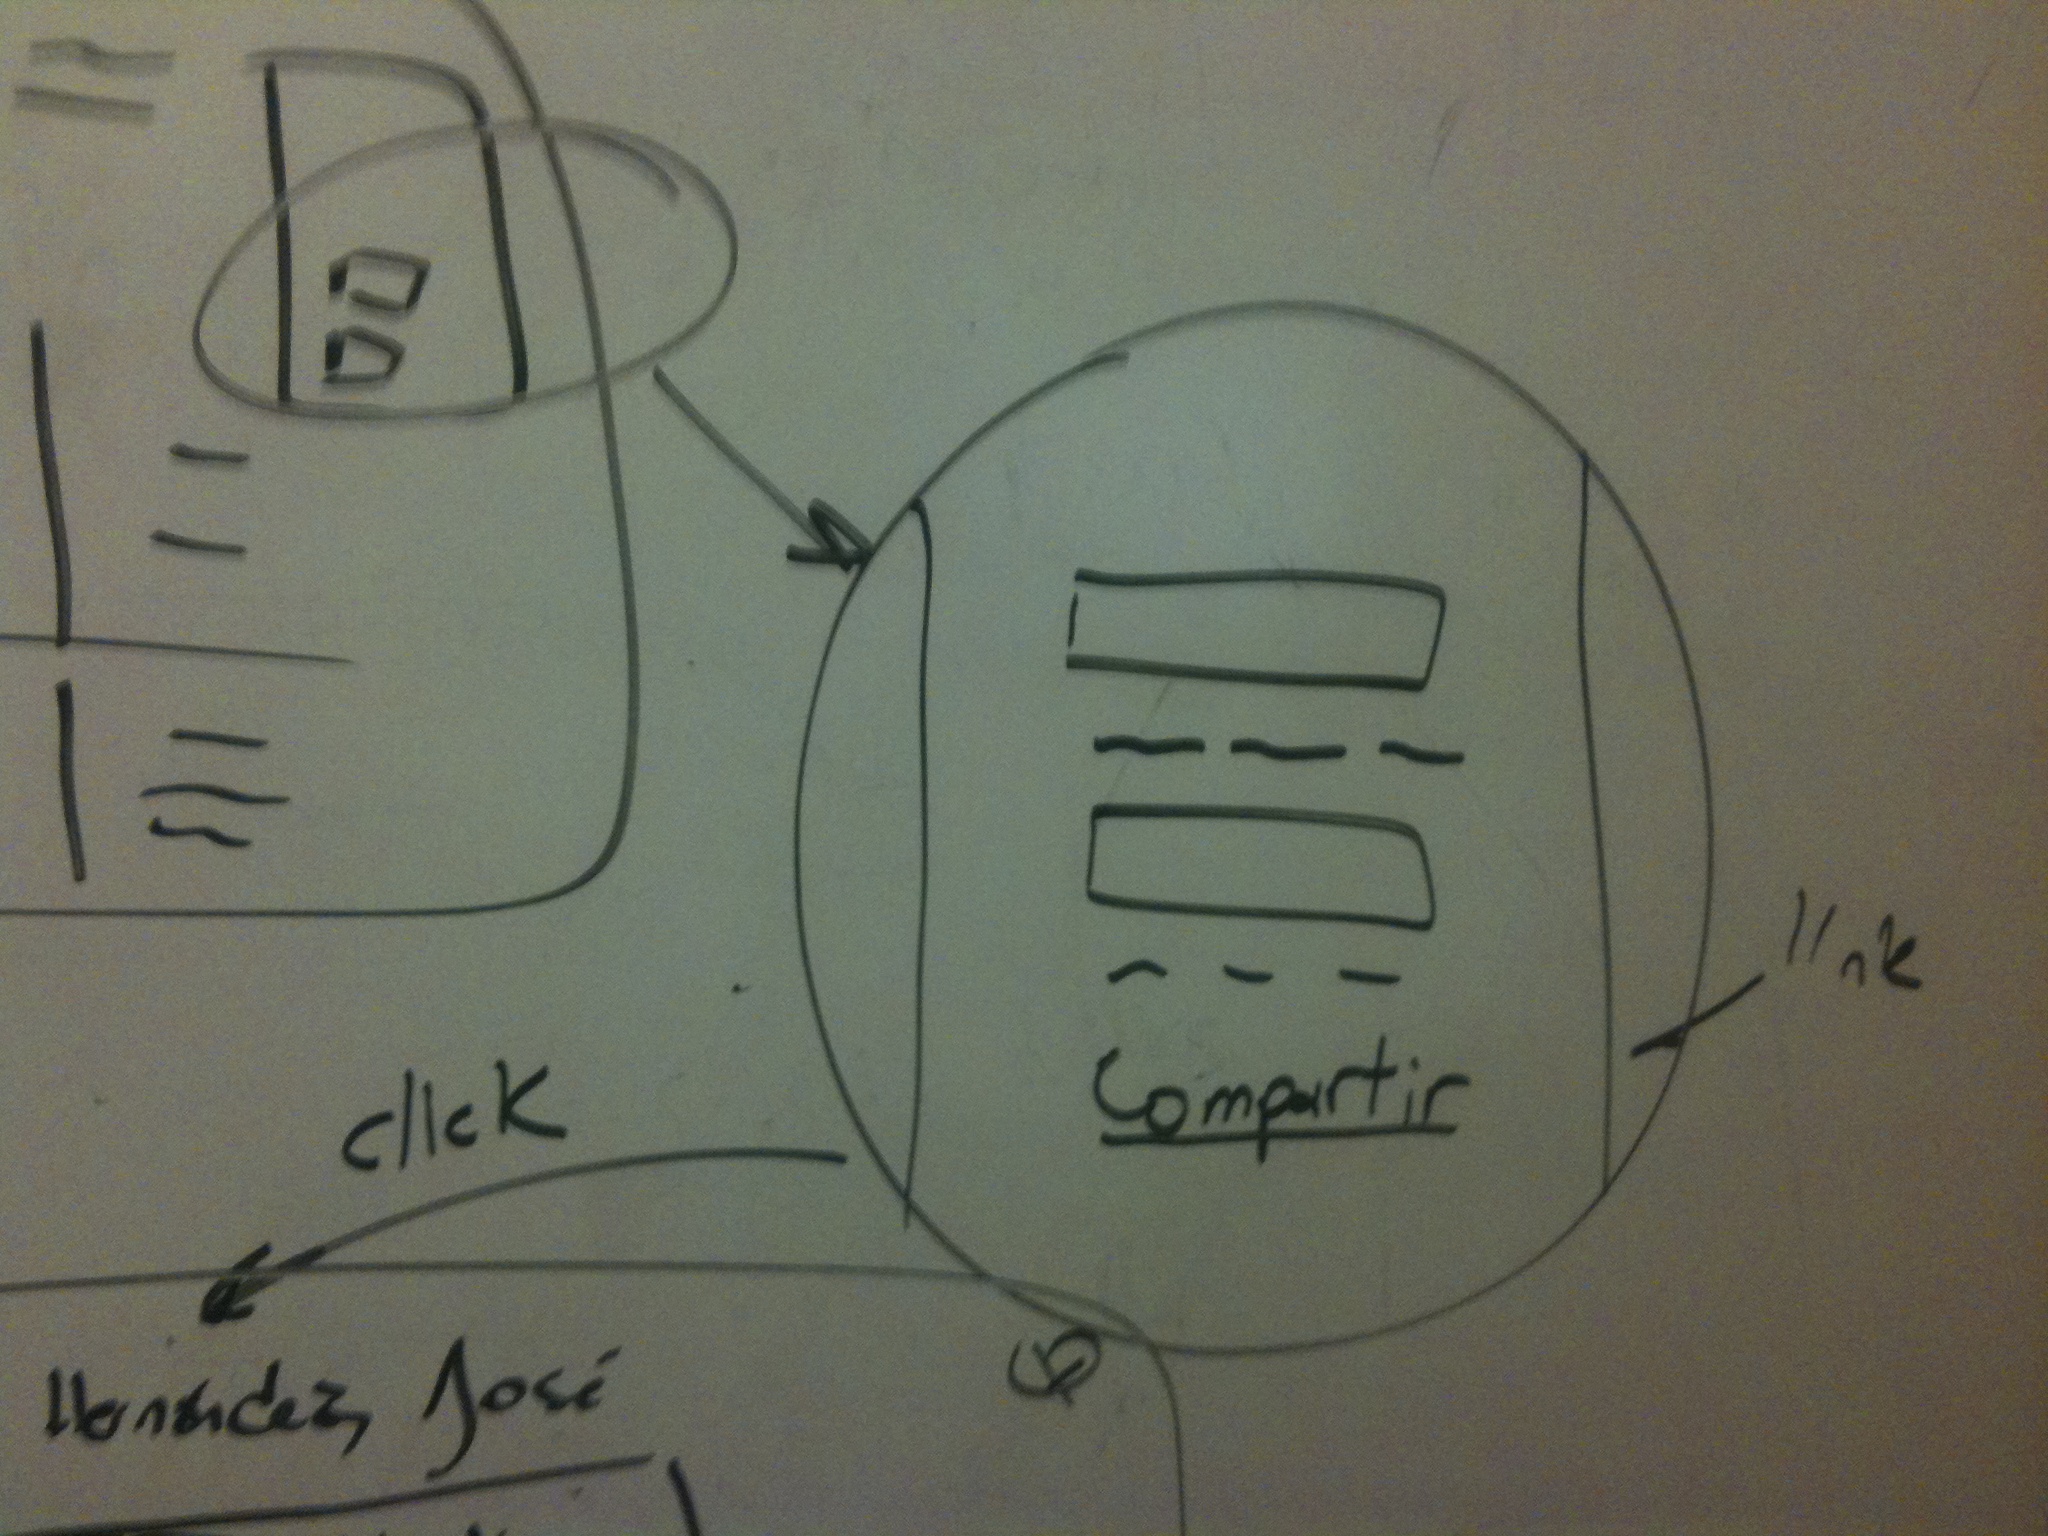 link
Compartir
click
Hernández, José